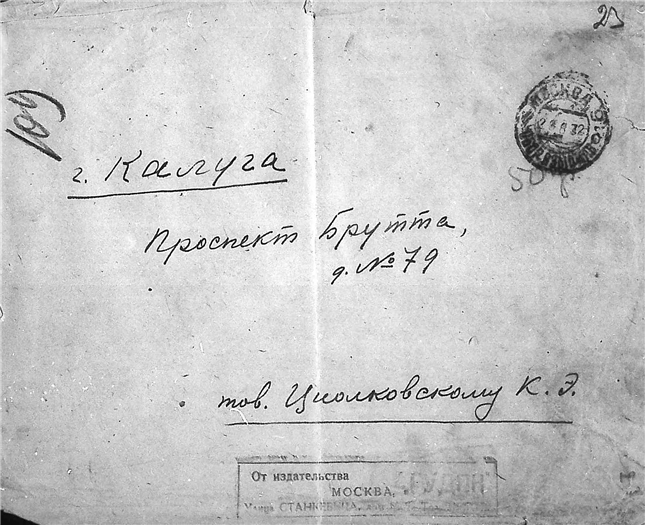 23
109
МОСКВА
2 8 32
50
г. Калуга
Проспект Брутта,
д. №79
тов. Циолковскому К. Э.
От издательства
МОСКВА,
Улица СТАНКЕВИЧА,